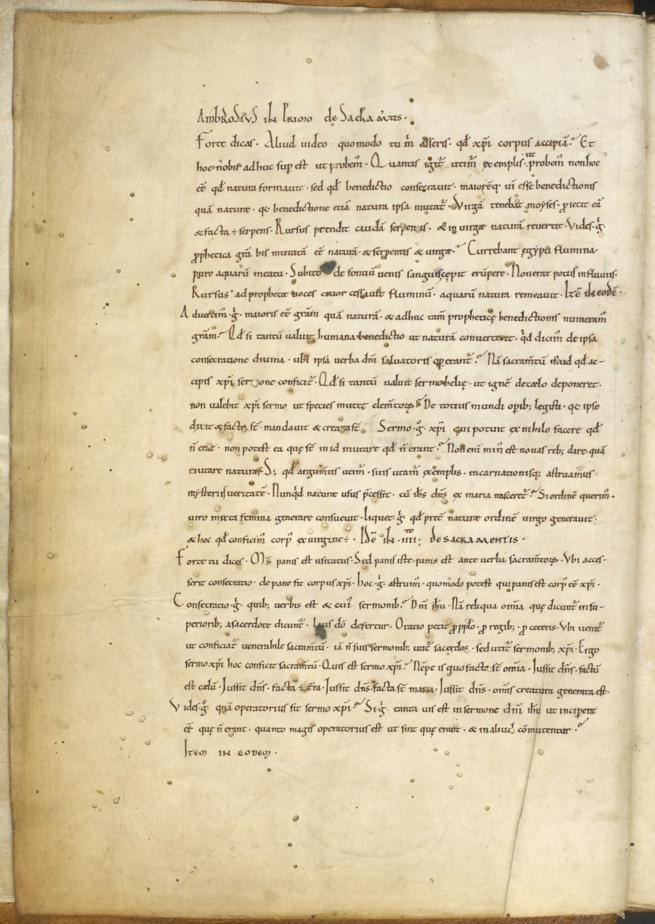 Ambrosius in libro de Sacramtis.
Forte dicas. Aliud video. quomodo tu m asseris. qd xpi corpus accipiã? Et
hoc nobis adhuc supest ut probem. Quantis igit utim exemplis. probem non hoc
eē qd natura formavit. sed qd benedictio consecravit. maiorēq; vi essē benedictionis
quā naturæ. qa benedictione etiā natura ipsa mutat. Virgā tenebat moyses. piecit eā
& facta ÷ serpens. Rursus prendit caudā serpentis. & in virgæ naturā revertit. Vides.g.
pphetica grā bis mutatā eē naturā & serpentis & virgæ? Currebant egypti flumina.
puro aquarū meatu. Subito de fontiū venis sanguis cepit erūpere. Non erat potus in fluviis.
Rursus ad prophetæ voces cruor cessavit fluminū. aquarū natura remeavit. Itē in eodē.
Advertim.g. maioris eē grām quā naturā. & adhuc tam propheticę benedictionis numeram
grām? Qd si tantū valuit humana benedictio ut naturā converteret. qd dicim de ipsa
consecratione divina. ubi ipsa verba dni salvatoris operant? Nā sacramtū istud qd ac-
cipis xpi sermone conficit. Qd si tantū valuit sermo helię. ut ignē de cælo deponeret.
non valebit xpi sermo ut species mutet elemtorȝ? De totius mundi opib; legisti. qa ipse
dixit & facta sē. mandavit & creata sē. Sermo.g. xpi qui potuit ex nihilo facere qd
n erat. non potest ea quę sē in id mutare qd n erant? Non enī min est novas reb; dare quā
mutare naturas. S; qd argumtis utim. suis utam exemplis. incarnationisq; astruamus
mysterii veritatē. Nunqd naturæ usus pcessit. cū ihs dns ex maria nasceret? Si ordinē querim.
viro mixta femina generare consuevit. Liquet.g. qd preter naturæ ordinē virgo generavit.
& hoc qd conficim corp ex virgine ÷. Idē in .iiii. de sacramentis.
Forte tu dices. Ms panis est usitatus. Sed panis iste. panis est ante verba sacramtorȝ. Ubi acces-
serit consecratio. de pane fit corpus xpi. Hoc.g. astruim. quomodo potest qui panis est corp eē xpi.
Consecratio.g. quib; verbis est & cui sermonib;? Dni ihu. Nā reliqua omia quę dicunt in su-
periorib; a sacerdote dicunt. Laus dō defertur. Oratio petit p pplo. p regib; p ceteris. Ubi venit
ut conficiat venerabile sacramtū. iā n suis sermonib; utit sacerdos. sed utit sermonib; xpi. Ergo
sermo xpi hoc conficit sacramtū. Quis est sermo xpi? Nēpe is quo facta sē omia. Iussit dns. factū
est cælū. Iussit dns. facta ÷ tra. Iussit dns. facta sē maria. Iussit dns. omis creatura generata est.
Vides.g. quā operatorius sit sermo xpi? Si.g. tanta vis est in sermone dni ihu ut inciperent
eē quę n erant. quanto magis operatorius est ut sint quę erant. & in aliud cōmutentur?
Item in eodem.